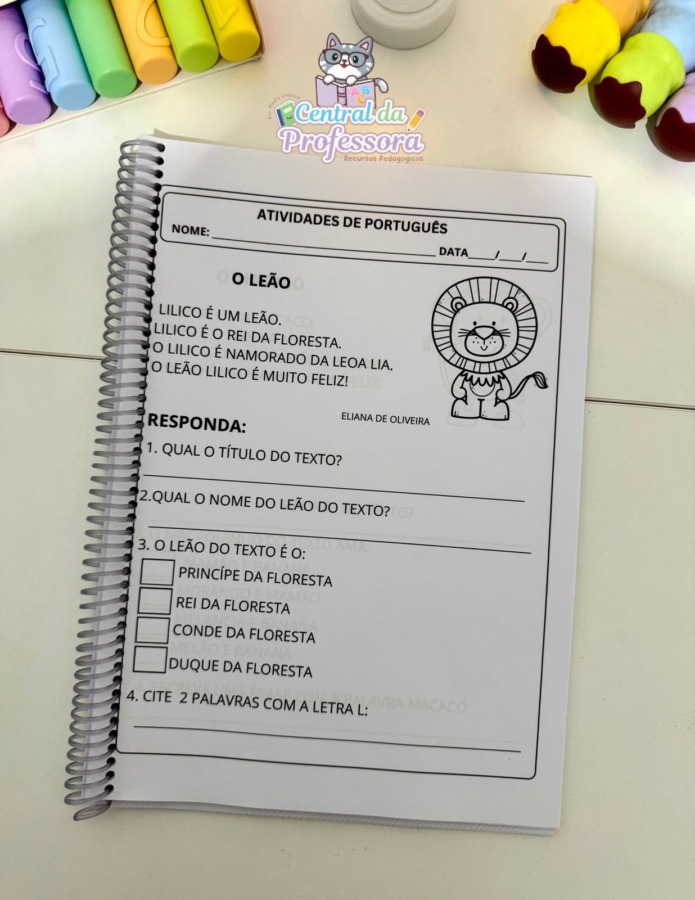 Central da
Professora
Recursos Pedagógicos
ATIVIDADES DE PORTUGUÊS
NOME: ______ DATA____/____/____
O LEÃO
LILICO É UM LEÃO.
LILICO É O REI DA FLORESTA.
O LILICO É NAMORADO DA LEOA LIA.
O LEÃO LILICO É MUITO FELIZ!
ELIANA DE OLIVEIRA
RESPONDA:
1. QUAL O TÍTULO DO TEXTO?
2.QUAL O NOME DO LEÃO DO TEXTO?
3. O LEÃO DO TEXTO É O:
PRINCÍPE DA FLORESTA
REI DA FLORESTA
CONDE DA FLORESTA
DUQUE DA FLORESTA
4. CITE 2 PALAVRAS COM A LETRA L: